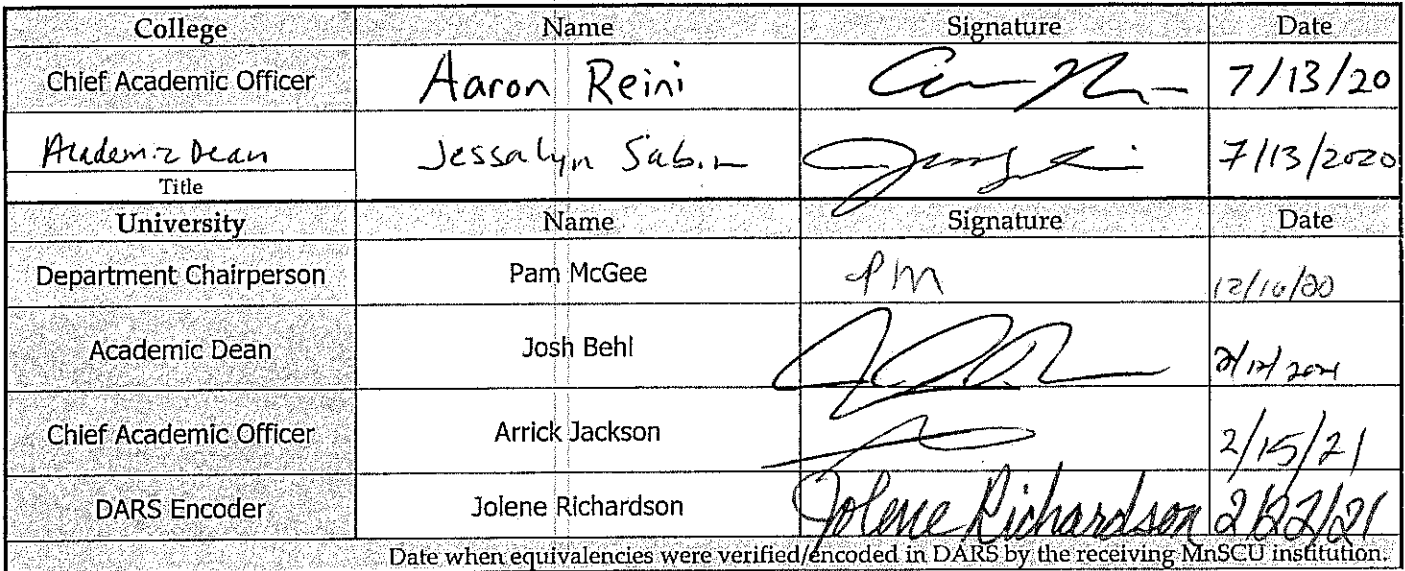 College Name Signature Date
Chief Academic Officer Aaron Reini 7/13/20
Academic Dean Jessalyn Sabin 7/13/2020
Title
University Name Signature Date
Department Chairperson Pam McGee PM 12/10/20
Academic Dean Josh Behl 2/12/2021
Chief Academic Officer Arrick Jackson 2/15/21
DARS Encoder Jolene Richardson Jolene Richardson 2/22/21
Date when equivalencies were verified/encoded in DARS by the receiving MnSCU institution.